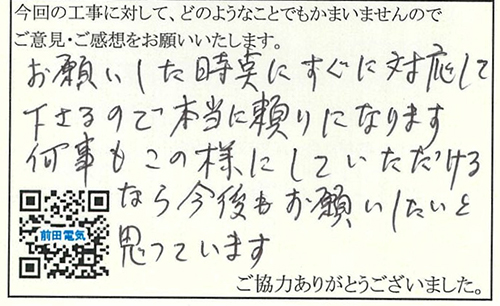 今回の工事に対して、どのようなことでもかまいませんので
ご意見・ご感想をお願いいたします。
お願いした時真にすぐに対応して
下さるので本当に頼りになります
何事もこの様にしていただける
なら今後もお願いしたいと
思っています
前田電気
ご協力ありがとうございました。